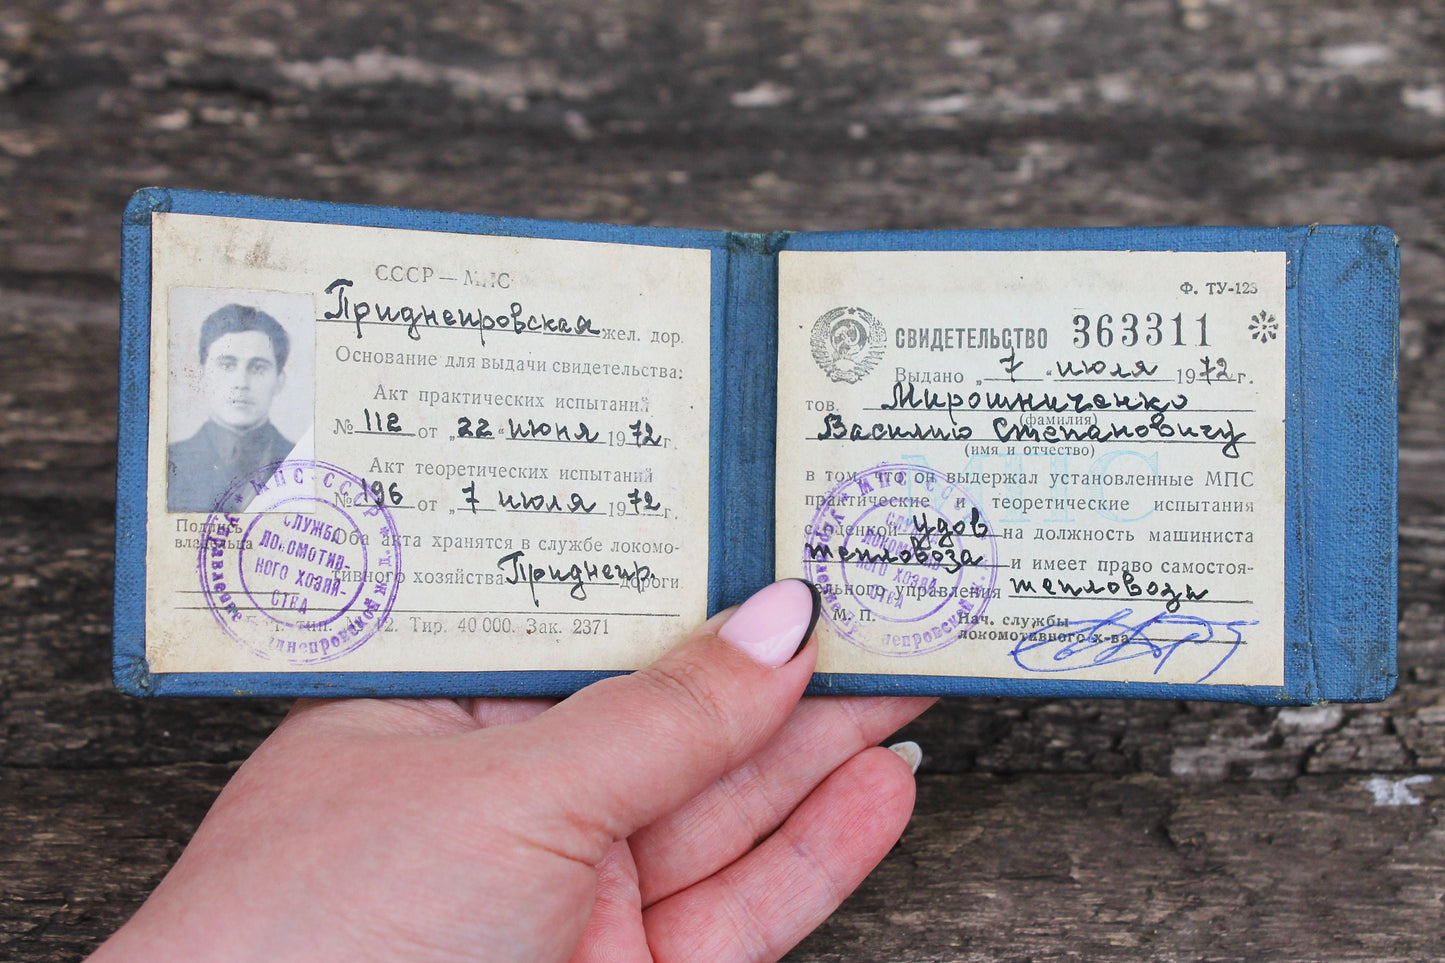 СССР — МПС
Приднепровская жел. дор.
Основание для выдачи свидетельства:
Акт практических испытаний
№ 112 от „22“ июня 1972 г.
Акт теоретических испытаний
№ 196 от „7 июля 1972 г.
Оба акта хранятся в службе локомо-
тивного хозяйства Приднепр. дороги
Подпись
владельца
тип. № 12. Тир. 40 000. Зак. 2371
МПС-СССР
СЛУЖБА
ЛОКОМОТИВ-
НОГО ХОЗЯЙ-
СТВА
Ф. ТУ-123
СВИДЕТЕЛЬСТВО 363311
Выдано „7“ июля 1972 г.
тов. Мирошниченко
(фамилия)
Василию Степановичу
(имя и отчество)
МПС
в том, что он выдержал установленные МПС
практические и теоретические испытания
с оценкой удов на должность машиниста
тепловоза и имеет право самостоя-
тельного управления тепловозы
М. П.
Нач. службы
локомотивного х-ва
МПС СССР
СЛУЖБА
ЛОКОМОТИВ-
НОГО ХОЗЯЙ-
СТВА